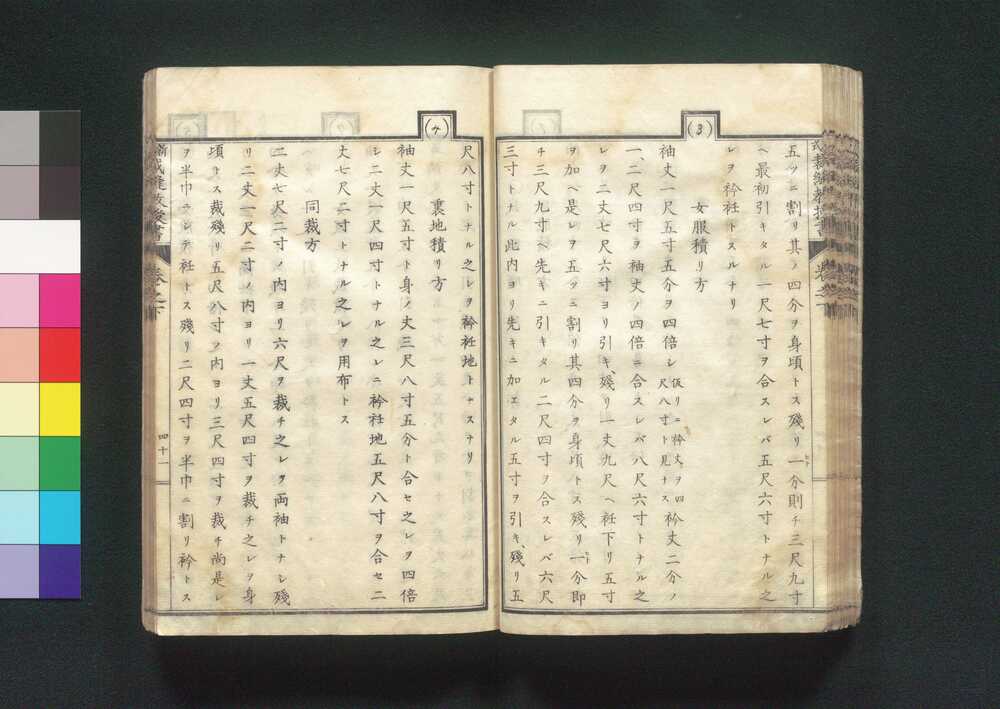 (3)
五ツニ割リ其ノ四分ヲ身頃トス殘リ一分則チ三尺九寸
ヘ最初引キタル一尺七寸ヲ合スレバ五尺六寸トナル之
レヲ衿衽トスルナリ
女服積リ方
袖丈一尺五寸五分ヲ四倍シ仮リニ衿丈ヲ四尺八寸ト見ナス衿丈二分ノ
一、二尺四寸ヲ袖丈ノ四倍ニ合スレバ八尺六寸トナル之
レヲ二丈七尺六寸ヨリ引キ、殘リ一丈九尺ヘ衽下リ五寸
ヲ加ヘ是レヲ五ツニ割リ其四分ヲ身頃トス殘リ一分即
チ三尺九寸ヘ先キニ引キタル二尺四寸ヲ合スレベ六尺
三寸トナル此内ヨリ先キニ加エタル五寸ヲ引キ、殘リ五
(4)
尺八寸トナル之レヲ衿衽地トナスナリ
裏地積リ方
袖丈一尺五寸ト身ノ丈三尺八寸五分ト合セ之レヲ四倍
シ二丈一尺四寸トナル之レニ衿衽地五尺八寸ヲ合セ二
丈七尺二寸トナル之レヲ用布トス
同裁方
二丈七尺二寸ノ内ヨリ六尺ヲ裁チ之レヲ両袖トナシ殘
リ二丈一尺二寸ノ内ヨリ一丈五尺四寸ヲ裁チ之レヲ身
頃トス裁殘リ五尺八寸ノ内ヨリ三尺四寸ヲ裁チ尚是レ
ヲ半巾ニシテ衽トス殘リ二尺四寸ヲ半巾ニ割リ衿トス
卷之下
四十一